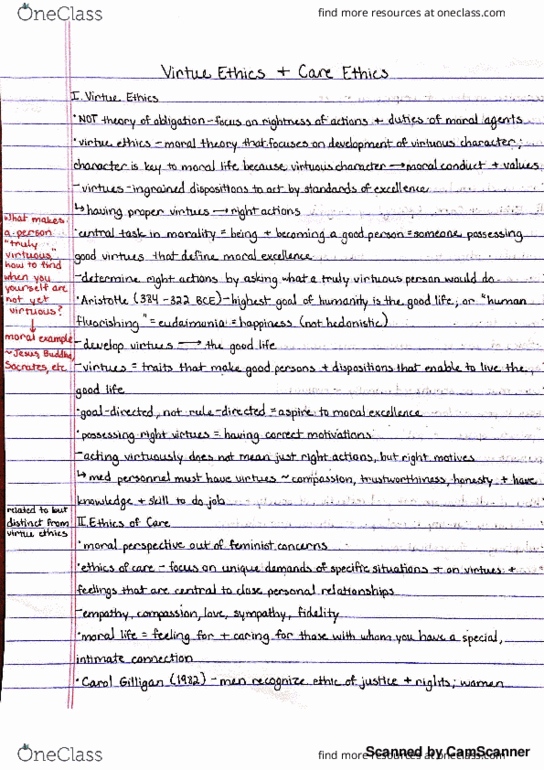 OneClass
find more resources at oneclass.com
Virtue Ethics + Care Ethics
I. Virtue Ethics
•NOT theory of obligation-focus on rightness of actions + duties of moral agents
•virtue ethics-moral theory that focuses on development of virtuous character;
character is key to moral life because virtuous character →moral conduct + values
-virtues-ingrained dispositions to act by standards of excellence
↳having proper virtues →right actions
What makes
a person
"truly
virtuous,"
how to find
when you
yourself are
not yet
virtuous?
↓
moral example
~Jesus, Buddha,
Socrates, etc.
•central task in morality = being + becoming a good person=someone possessing
good virtues that define moral excellence
-determine right actions by asking what a truly virtuous person would do
•Aristotle (384-322 BCE)-highest goal of humanity is the good life, or "human
fluorishing" = eudaimonia = happiness (not hedonistic)
-develop virtues → the good life
-virtues = traits that make good persons + dispositions that enable to live the
good life
•goal-directed, not rule-directed = aspire to moral excellence
•possessing right virtues = having correct motivations
-acting virtuously does not mean just right actions, but right motives
↳med personnel must have virtues ~ compassion, trustworthiness, honesty + have
knowledge + skill to do job
related to but
distinct from
virtue ethics
II. Ethics of Care
•moral perspective out of feminist concerns
•ethics of care - focus on unique demands of specific situations + on virtues +
feelings that are central to close personal relationships
-empathy, compassion, love, sympathy, fidelity
•moral life = feeling for + caring for those with whom you have a special,
intimate connection
•Carol Gilligan (1982) -men recognize ethic of justice + rights; women
OneClass
find more resources at oneclass.com
Scanned by CamScanner